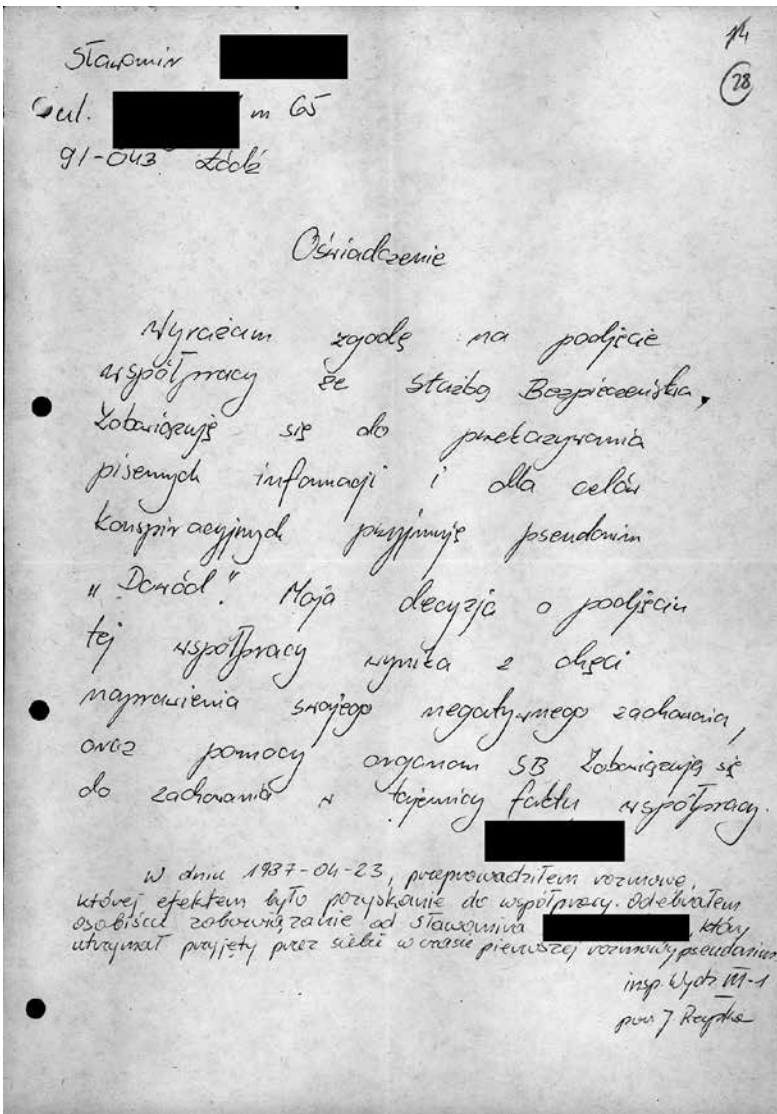 14
28
Sławomir
ul. m 65
91-043 Łódź
Oświadczenie
Wyrażam zgodę na podjęcie
współpracy ze Służbą Bezpieczeństwa,
Zobowiązuję się do przekazywania
pisemnych informacji i dla celów
konspiracyjnych przyjmuję pseudonim
"Dowód". Moja decyzja o podjęciu
tej współpracy wynika z chęci
naprawienia swojego negatywnego zachowania,
oraz pomocy organom SB Zobowiązuję się
do zachowania w tajemnicy faktu współpracy.
W dniu 1987-04-23, przeprowadziłem rozmowę,
której efektem było pozyskanie do współpracy. Odebrałem
osobiście zobowiązanie od Sławomira , który
utrzymał przyjęty przez siebie w czasie pierwszej rozmowy pseudonim
insp. Wydz. III-1
por. J.